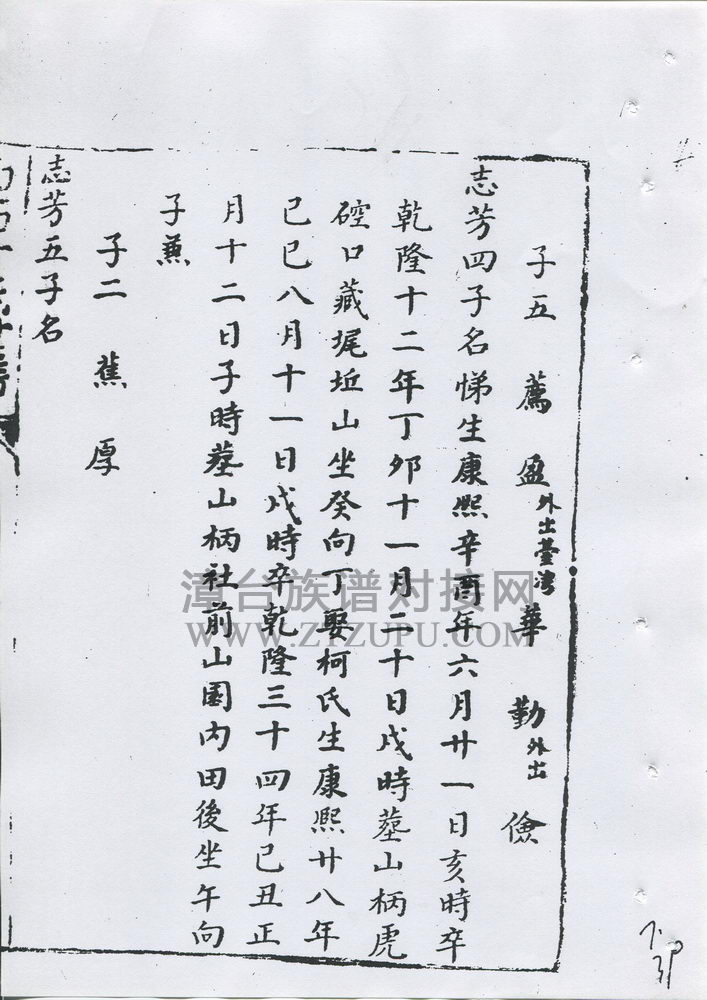 子五 薦 盈外出臺湾 華 勤外出 儉
志芳四子名悌生康熙辛酉年六月廿一日亥時卒
乾隆十二年丁卯十一月二十日戌時墓山柄虎
硿口藏坭坵山坐癸向丁娶柯氏生康熙廿八年
己巳八月十一日戌時卒乾隆三十四年己丑正
月十二日子時墓山柄社前山園内田後坐午向
子
子二 蕉 厚
志芳五子名
漳台族谱对接网
WWW.ZTZUPU.COM